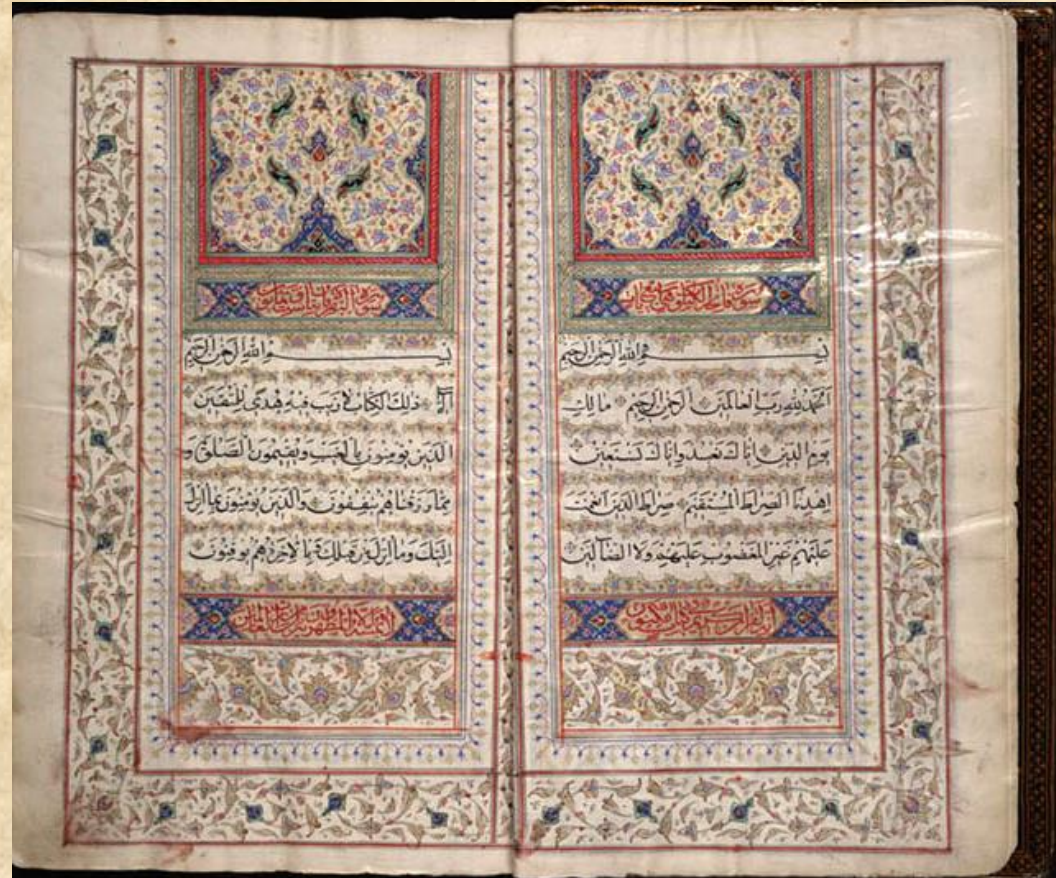 سورة فاتحة الكتاب
بسم الله الرحمن الرحيم
الحمد لله رب العالمين الرحمن الرحيم مالك
يوم الدين اياك نعبد واياك نستعين
اهدنا الصراط المستقيم صراط الذين انعمت
عليهم غير المغضوب عليهم ولا الضالين
انه لقرآن كريم في كتاب مكنون
سورة البقرة
بسم الله الرحمن الرحيم
الم ذلك الكتاب لا ريب فيه هدى للمتقين
الذين يؤمنون بالغيب ويقيمون الصلوة و
مما رزقناهم ينفقون والذين يؤمنون بما انزل
اليك وما انزل من قبلك وبالاخرة هم يوقنون
لا يمسه الا المطهرون تنزيل من رب العالمين